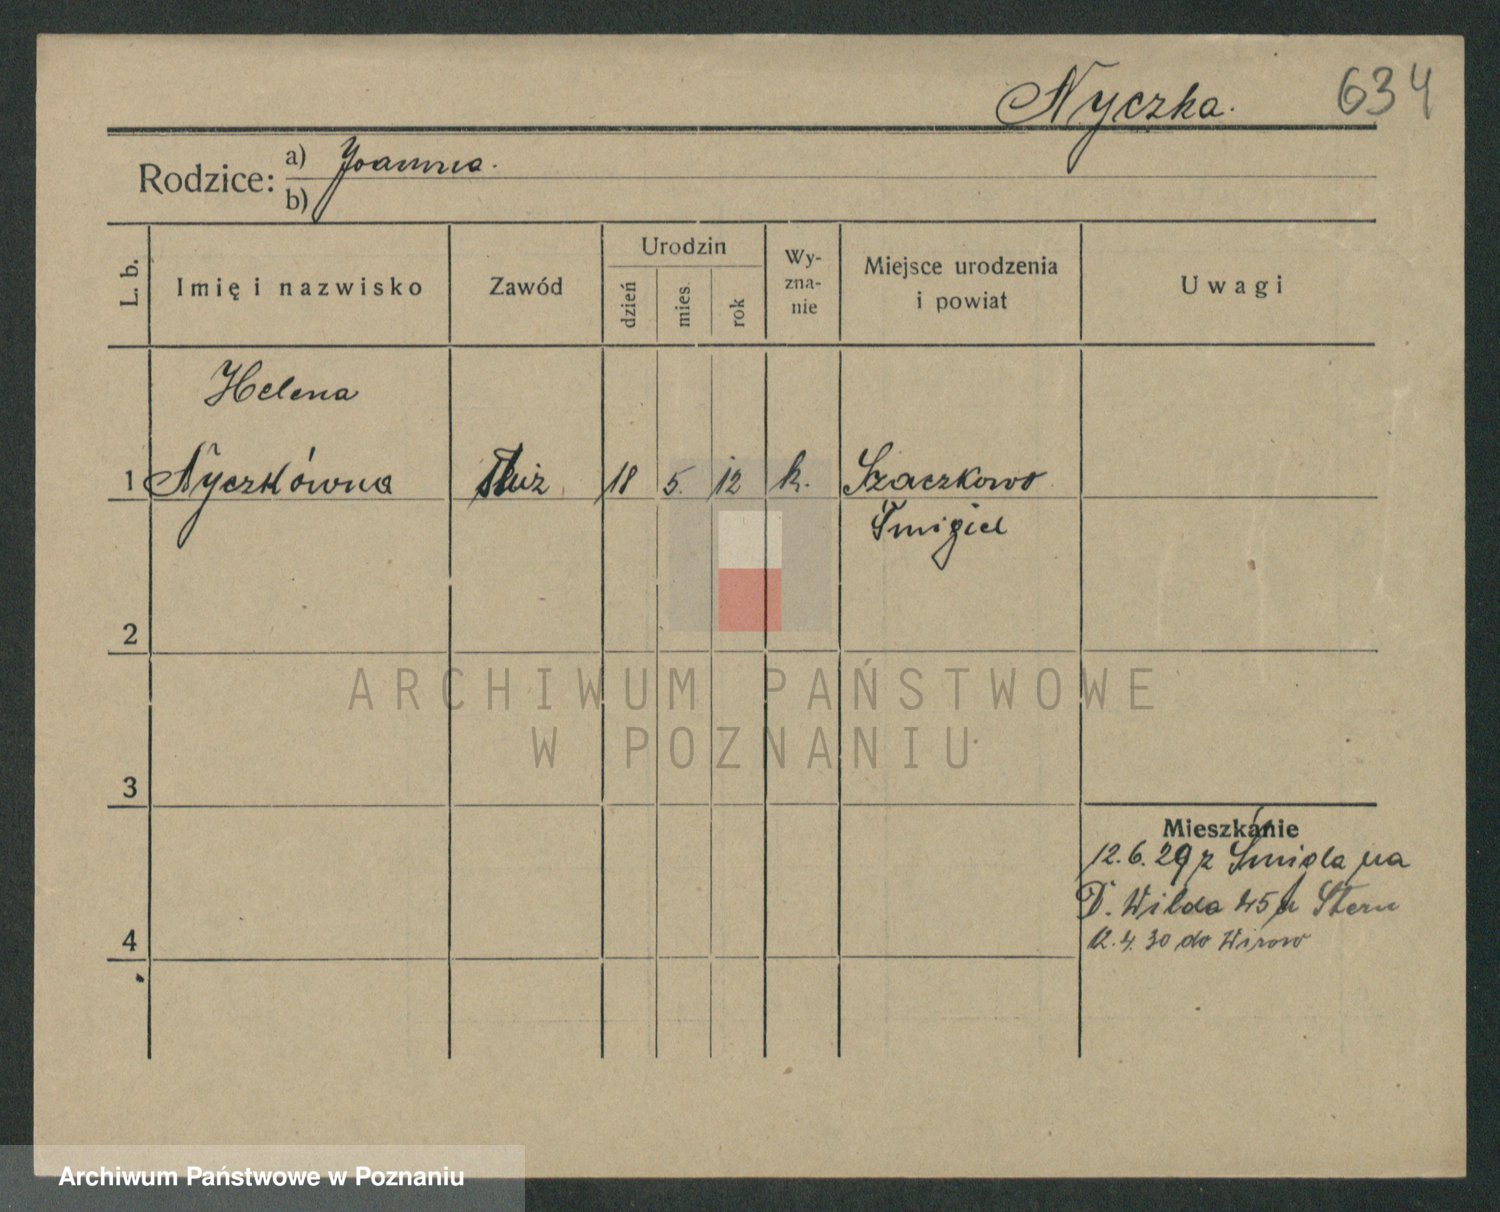 Nyczka. 634
Rodzice: a) Joanna.
b)
L. b.
Imię i nazwisko
Zawód
Urodzin
dzień
mies.
rok
Wy-
zna-
nie
Miejsce urodzenia
i powiat
Uwagi
Helena
1 Nyczkówna służ 18 5. 12 k. Szaczkowo
Śmigiel
2
ARCHIWUM PAŃSTWOWE
W POZNANIU
3
Mieszkanie
12.6.29 z Śmigla na
D. Wilda 45 u Stern
4
12.4.30 do
Archiwum Państwowe w Poznaniu